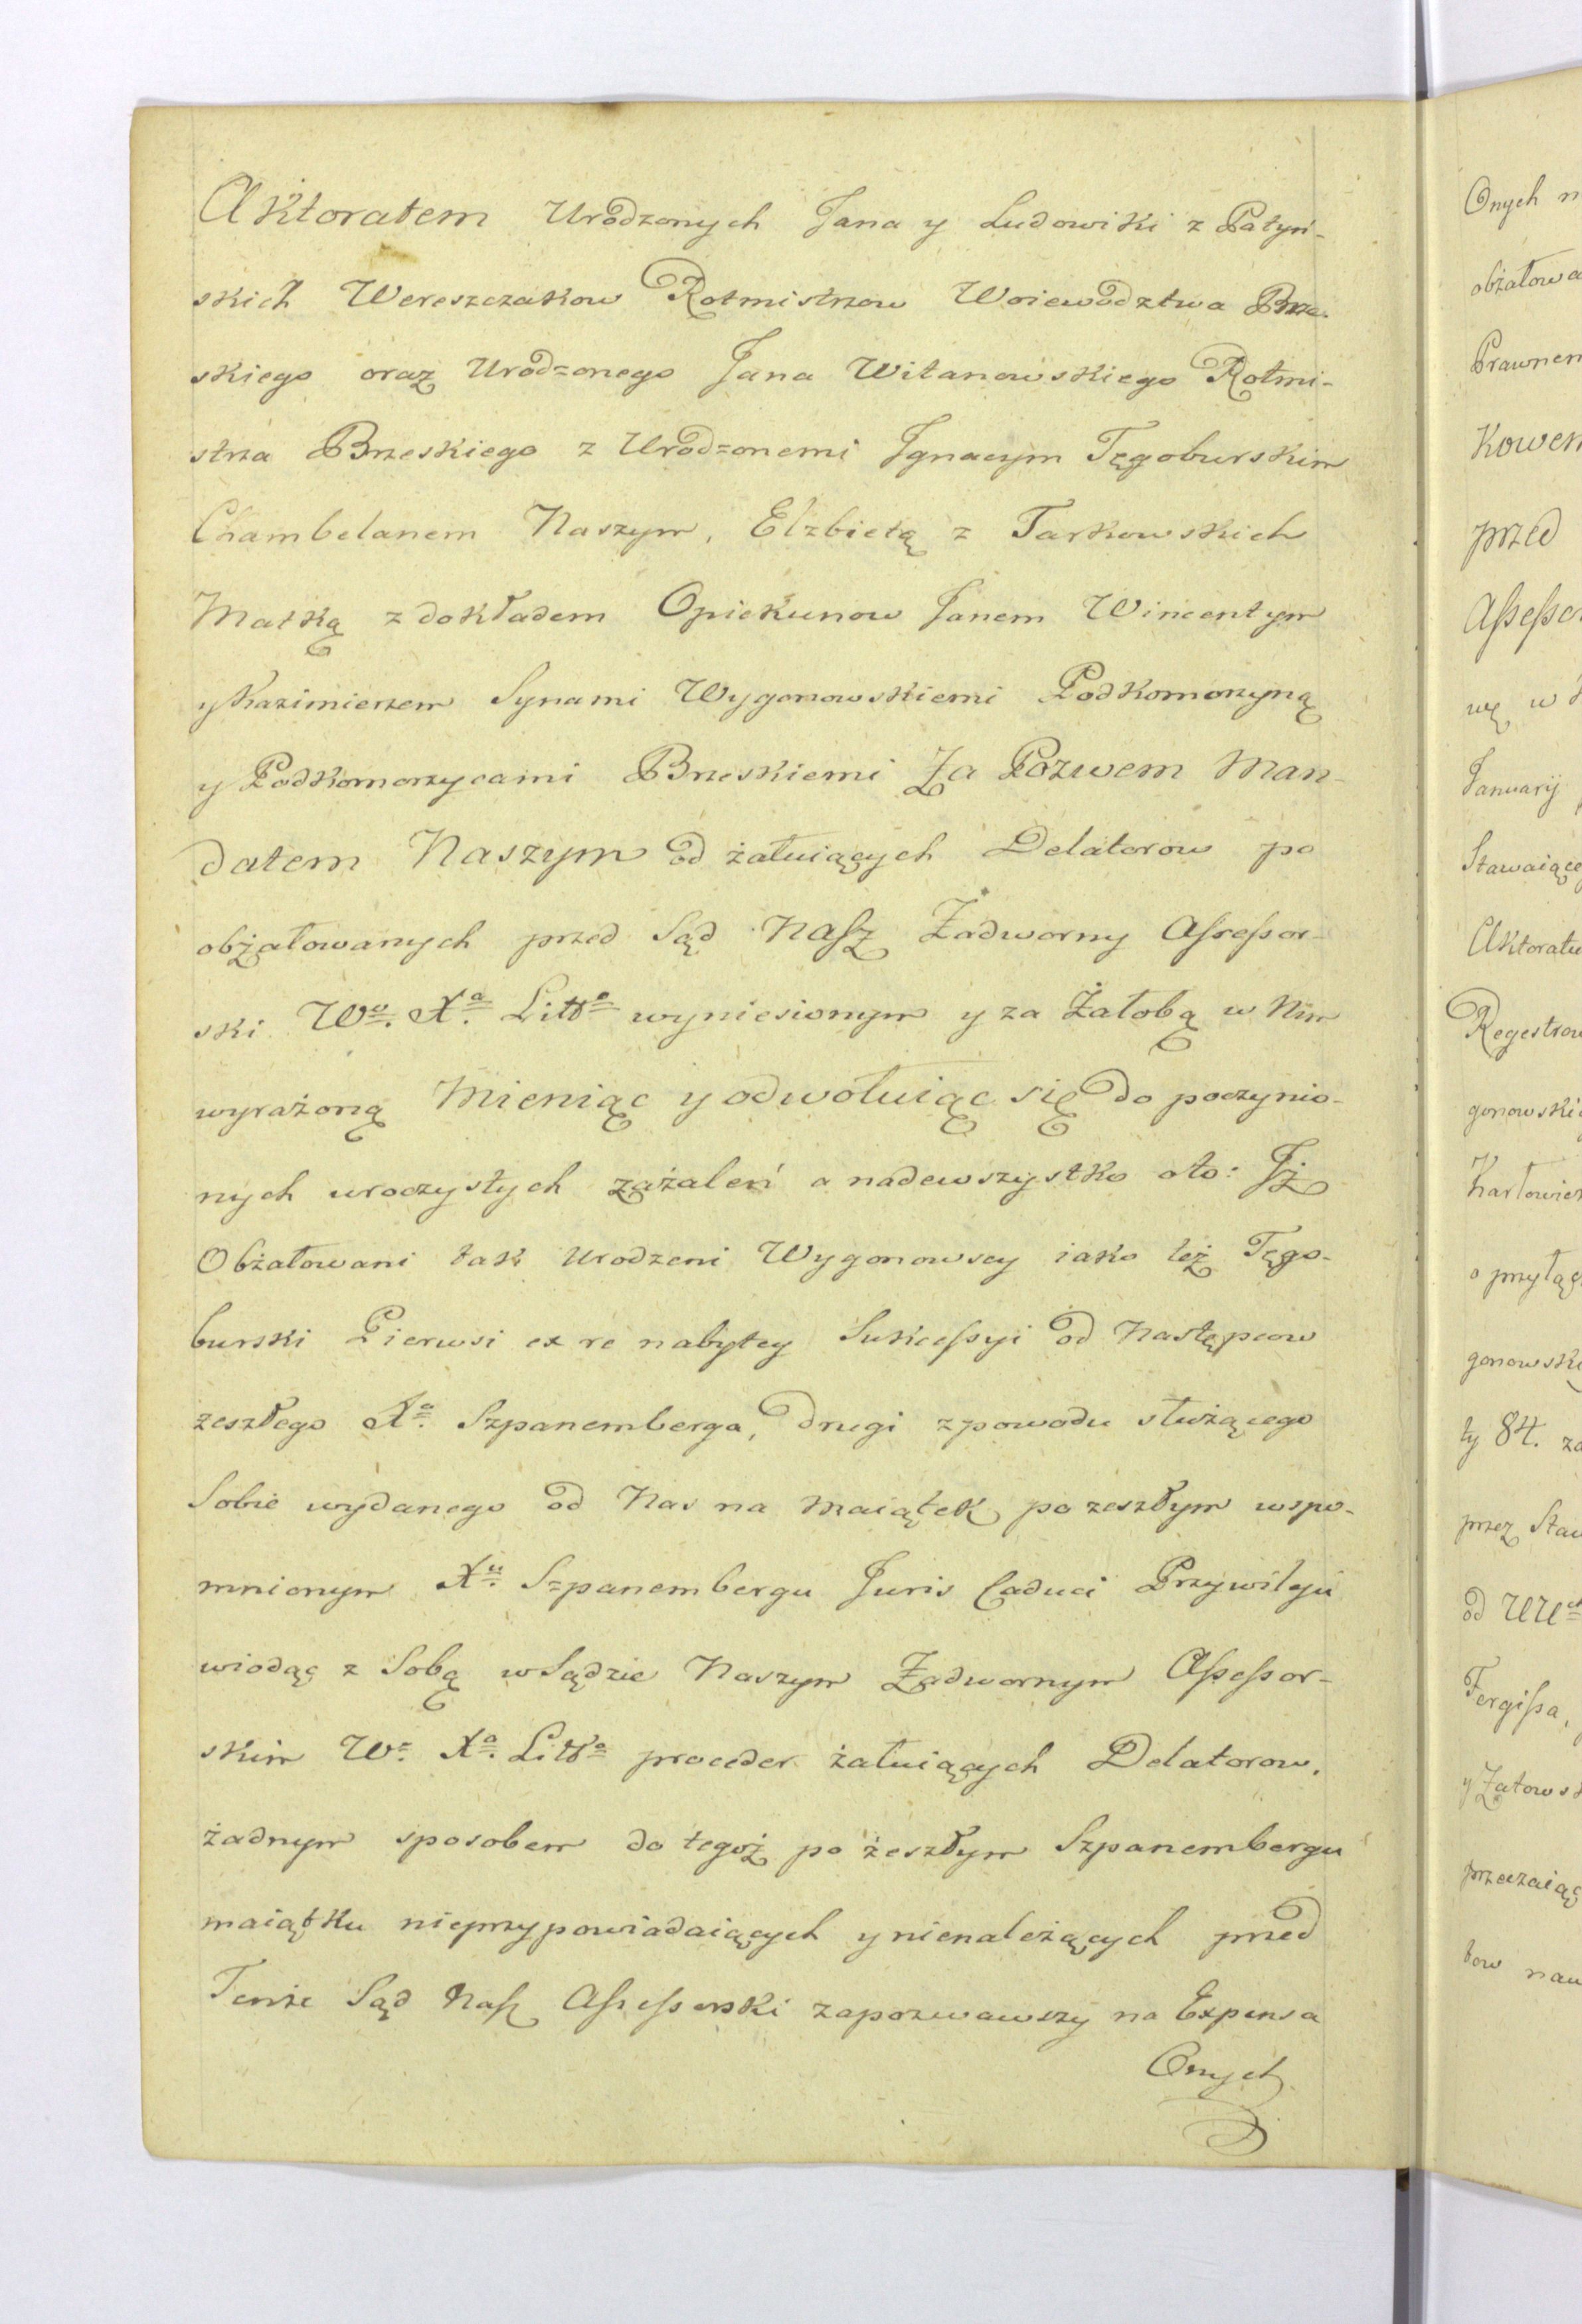 Aktoratem Urodzonych Jana y Ludowiki z Patyń-
skich Wereszczakow Rotmistrzow Woiewodztwa Brze-
skiego oraz Urodzonego Jana Witanowskiego Rotmi-
strza Brzeskiego z Urodzonemi Jgnacym Tęgoburskim
Chambelanem Naszym, Elzbietą z Tarkowskich
Matką z dokładem Opiekunow Janem Wincentym
y Kazimierzem Synami Wygonowskiemi Podkomorzyną
y Podkomorzycami Brzeskiemi Za Pozwem Man-
datem Naszym od żałuiących Delatorow po
obżałowanych przed Sąd Nasz Zadworny Assessor-
ski Wo. Xa. Litto wyniesionym y za Żałobą w Nim
wyrażoną Mieniąc y odwołuiąc się do poczynio-
nych uroczystych zażaleń a nadewszystko oto: Jż
Obżałowani tak Urodzeni Wygonowscy iako też Tęgo-
burski Pierwsi ex re nabytey Sukcessyi od Następcow
zeszłego Xa. Szpanemberga, drugi z powodu służącego
Sobie wydanego od Nas na Maiątek po zeszłym wspo-
mnionym Xu. Szpanembergu Juris Caduci Przywileju
wiodąc z Sobą w Sądzie Naszym Zadwornym Assessor-
skim Wo. Xa. Litto proceder żałuiących Delatorow,
żadnym sposobem do tegoż po żeszłym Szpanembergu
maiątku nieprzypowiadaiących y nienależących przed
Tenże Sąd Nasz Assessorski zapozwawszy na Expensa
Onych
Onych
obżałowa
Prawnem
kowem
przed
Assesso
wę w
January
Stawaiące
Aktoratu
Regestrow
gonowski
Karłowicz
o przyłąc
gonowski
ty 84. za
przez Staw
od UU
Fergissa,
y Załows
przeczaiąc
tow nau